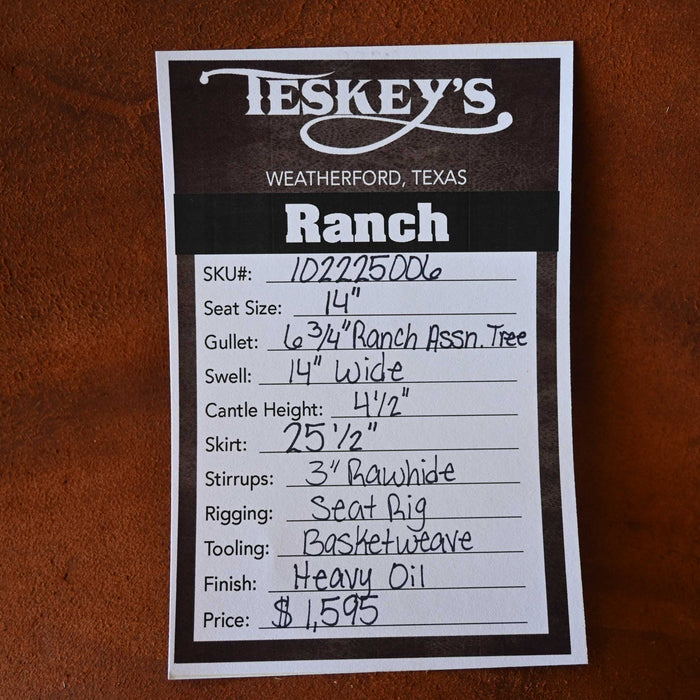 TESKEY'S
WEATHERFORD, TEXAS
Ranch
SKU#: 102225006
Seat Size: 14"
Gullet: 6 3/4" Ranch Assn. Tree
Swell: 14" Wide
Cantle Height: 4 1/2"
Skirt: 25 1/2"
Stirrups: 3" Rawhide
Rigging: Seat Rig
Tooling: Basketweave
Finish: Heavy Oil
Price: $1,595